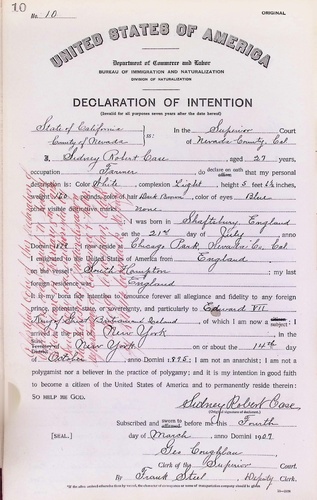 10
No. 10
ORIGINAL
UNITED STATES OF AMERICA
Department of Commerce and Labor
BUREAU OF IMMIGRATION AND NATURALIZATION
DIVISION OF NATURALIZATION
DECLARATION OF INTENTION
(Invalid for all purposes seven years after the date hereof)
State of California
County of Nevada
ss:
In the Superior Court
of Nevada County, Cal
I, Sidney Robert Case, aged 27 years,
occupation Farmer, do declare on oath affirm that my personal
description is: Color White, complexion Light, height 5 feet inches,
weight 160 pounds, color of hair Dark Brown, color of eyes Blue
other visible distinctive marks None
I was born in Shaftsbury England
on the 21st day of July, anno
Domini; I now reside at Chicago Park, Nevada Co. Cal.
I emigrated to the United States of America from England
on the vessel South Hampton; my last
foreign residence was England
It is my bona fide intention to renounce forever all allegiance and fidelity to any foreign
prince, potentate, state, or sovereignty, and particularly to Edward VII
King of Great Britain and Ireland, of which I am now a citizen subject; I
arrived at the port of New York, in the
State Territory District of New York on or about the 14th day
of October, anno Domini 1895; I am not an anarchist; I am not a
polygamist nor a believer in the practice of polygamy; and it is my intention in good faith
to become a citizen of the United States of America and to permanently reside therein:
SO HELP ME GOD.
Sidney Robert Case
(Original signature of declarant.)
Subscribed and sworn to affirmed before me this Fourth
[SEAL.]
day of March, anno Domini 1907
Geo Coughlan
Clerk of the Superior Court.
By Frank Steel Deputy Clerk.